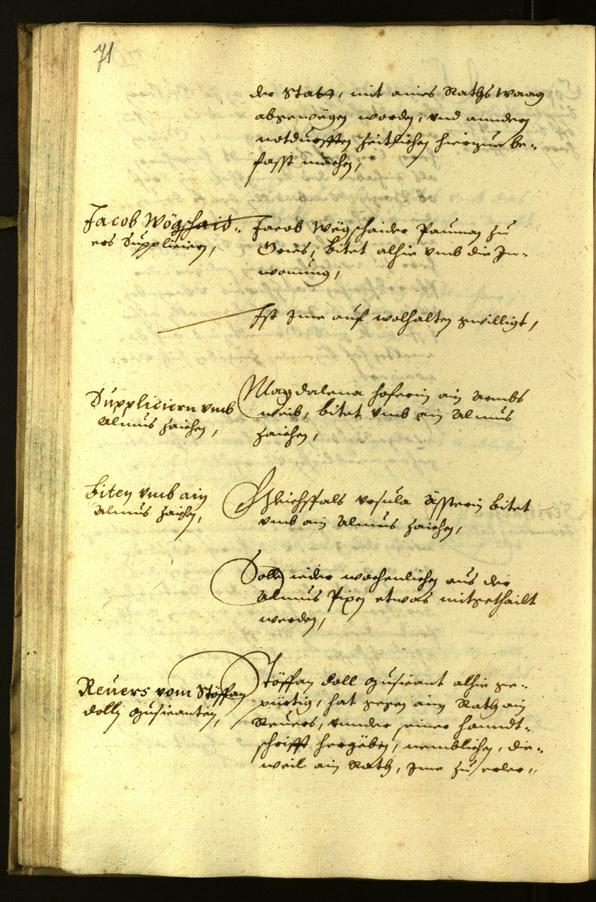 71
der Statt, mit aines Raths waag
abgewegen worden, vnd anndern
notdurfften zeitlichen hierzue be„
fasst machen,
Jacob Wögschaid„
ers Supplicieren,
Jacob Wegschaider Pauman zu
Gries, bitet alhie vmb die In„
wonung,
Ist Ime auf wolhalten gewilligt,
Suppliciern vmb
Almuß zaichen,
Magdalena Hoferin ain Armbs
weib, bitet vmb ein Almuß
zaichen,
Biten vmb ain
Almuß zaichen,
Gleichsfals Vrsula bitet
vmb ain Almuß zaichen,
Solle ieder wochenlichen aus der
Almuß Pixen etwas mitgethailt
werden,
Reuers vom Stöffan
Doll
Stöffan Doll alhie ge„
pürtig, hat gegen aim Rath ain
Reuers, vnnder seiner Hanndt„
schrifft hergeben, nemblichen, die„
weil ain Rath, Ime zu erler„